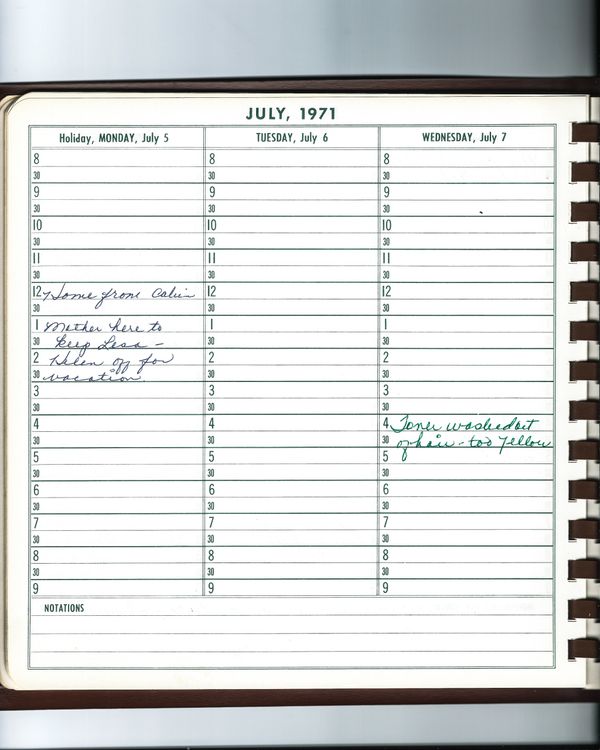 JULY, 1971
Holiday, MONDAY, July 5 TUESDAY, July 6 WEDNESDAY, July 7
8 8 8
30 30 30
9 9 9
30 30 30
10 10 10
30 30 30
11 11 11
30 30 30
12 Home from Cabin 12 12
30 30 30
1 Mother here to 1 1
30 keep Lesa - 30 30
2 Helen off for 2 2
30 vacation. 30 30
3 3 3
30 30 30
4 4 4 Toner washed out
30 30 30 of hair - too yellow
5 5 5
30 30 30
6 6 6
30 30 30
7 7 7
30 30 30
8 8 8
30 30 30
9 9 9
NOTATIONS